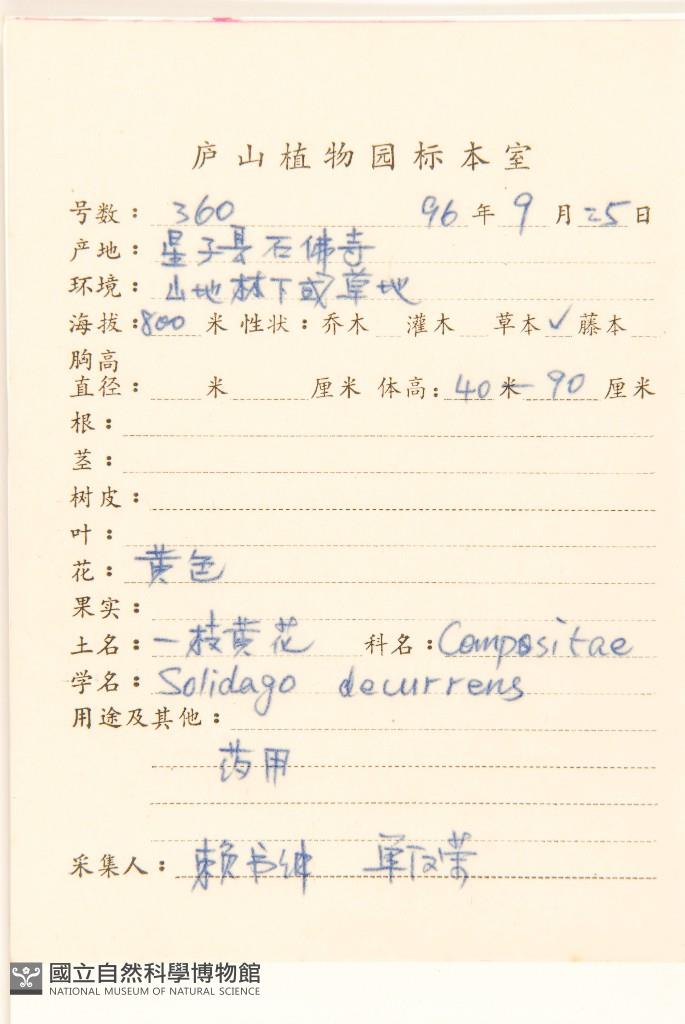 庐山植物园标本室
号数：360 96年9月25日
产地：星子县石佛寺
环境：山地林下或草地
海拔：800米 性状：乔木 灌木 草本✓藤本
胸高
直径： 米 厘米 体高：40米—90厘米
根：
茎：
树皮：
叶：
花：黄色
果实：
土名：一枝黄花 科名：Compositae
学名：Solidago decurrens
用途及其他：
药用
采集人：赖书绅 单汉荣
國立自然科學博物館
NATIONAL MUSEUM OF NATURAL SCIENCE